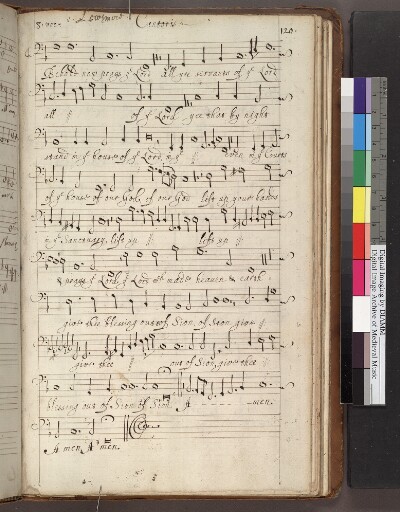 120.
Behold now prayse yᵉ Lord All yee servants of yᵉ Lord
all of yᵉ Lord yee that by night
stand in yᵉ house of yᵉ Lord in yᵉ even in yᵉ Courts
of yᵉ house of our God, of our God lift up your hands
in yᵉ Sanctuary, lift up lift up
& prayse yᵉ Lord, yᵉ Lord that made heaven & earth
give thee blessing out of Sion, of Sion give
give thee out of Sion, give thee
blessing out of Sion of Sion A - - - men.
A men A men.
Digital Imaging by DIAMM
Digital Image Archive of Medieval Music